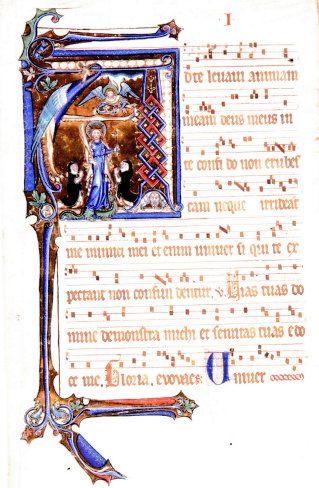 I
A Dte leuaui animam
meam deus meus in
te confi do non erubes
cam neque irrideāt
me inimici mei et enim uniuer si qui te ex
pectant non confun dentur. V. Vias tuas do
mine demonstra michi et semitas tuas edo
ce me. Gloria. euouaes. Uniuer